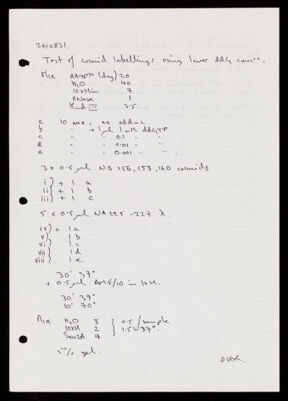 240831.
Test of cosmid labelling, using lower ddG conc.
Mix dATP (dry) 20
H2O 40
10xHin 7
RNase 1
Hind III 3.5
a 10 mix, no addns
b " + 1 µl 1 mM ddGTP
c " " 0.1 "
d " " 0.01 "
e " " 0.001 "
3 x 0.5 µl NB 156, 158, 160 cosmids
i) + 1 a
ii) + 1 b
iii) + 1 c
5 x 0.5 µl NA 225-227 λ.
iv) + 1 a
v) 1 b
vi) 1 c
vii) 1 d
viii) 1 e.
30' 37°
+ 0.5 µl AMV/10 in 1xH.
30' 37°
10' 70°
Mix H2O 5
10xH 2
Sau3A 4
} 0.5/sample
1.5h 37°.
5% gel.
OVER.